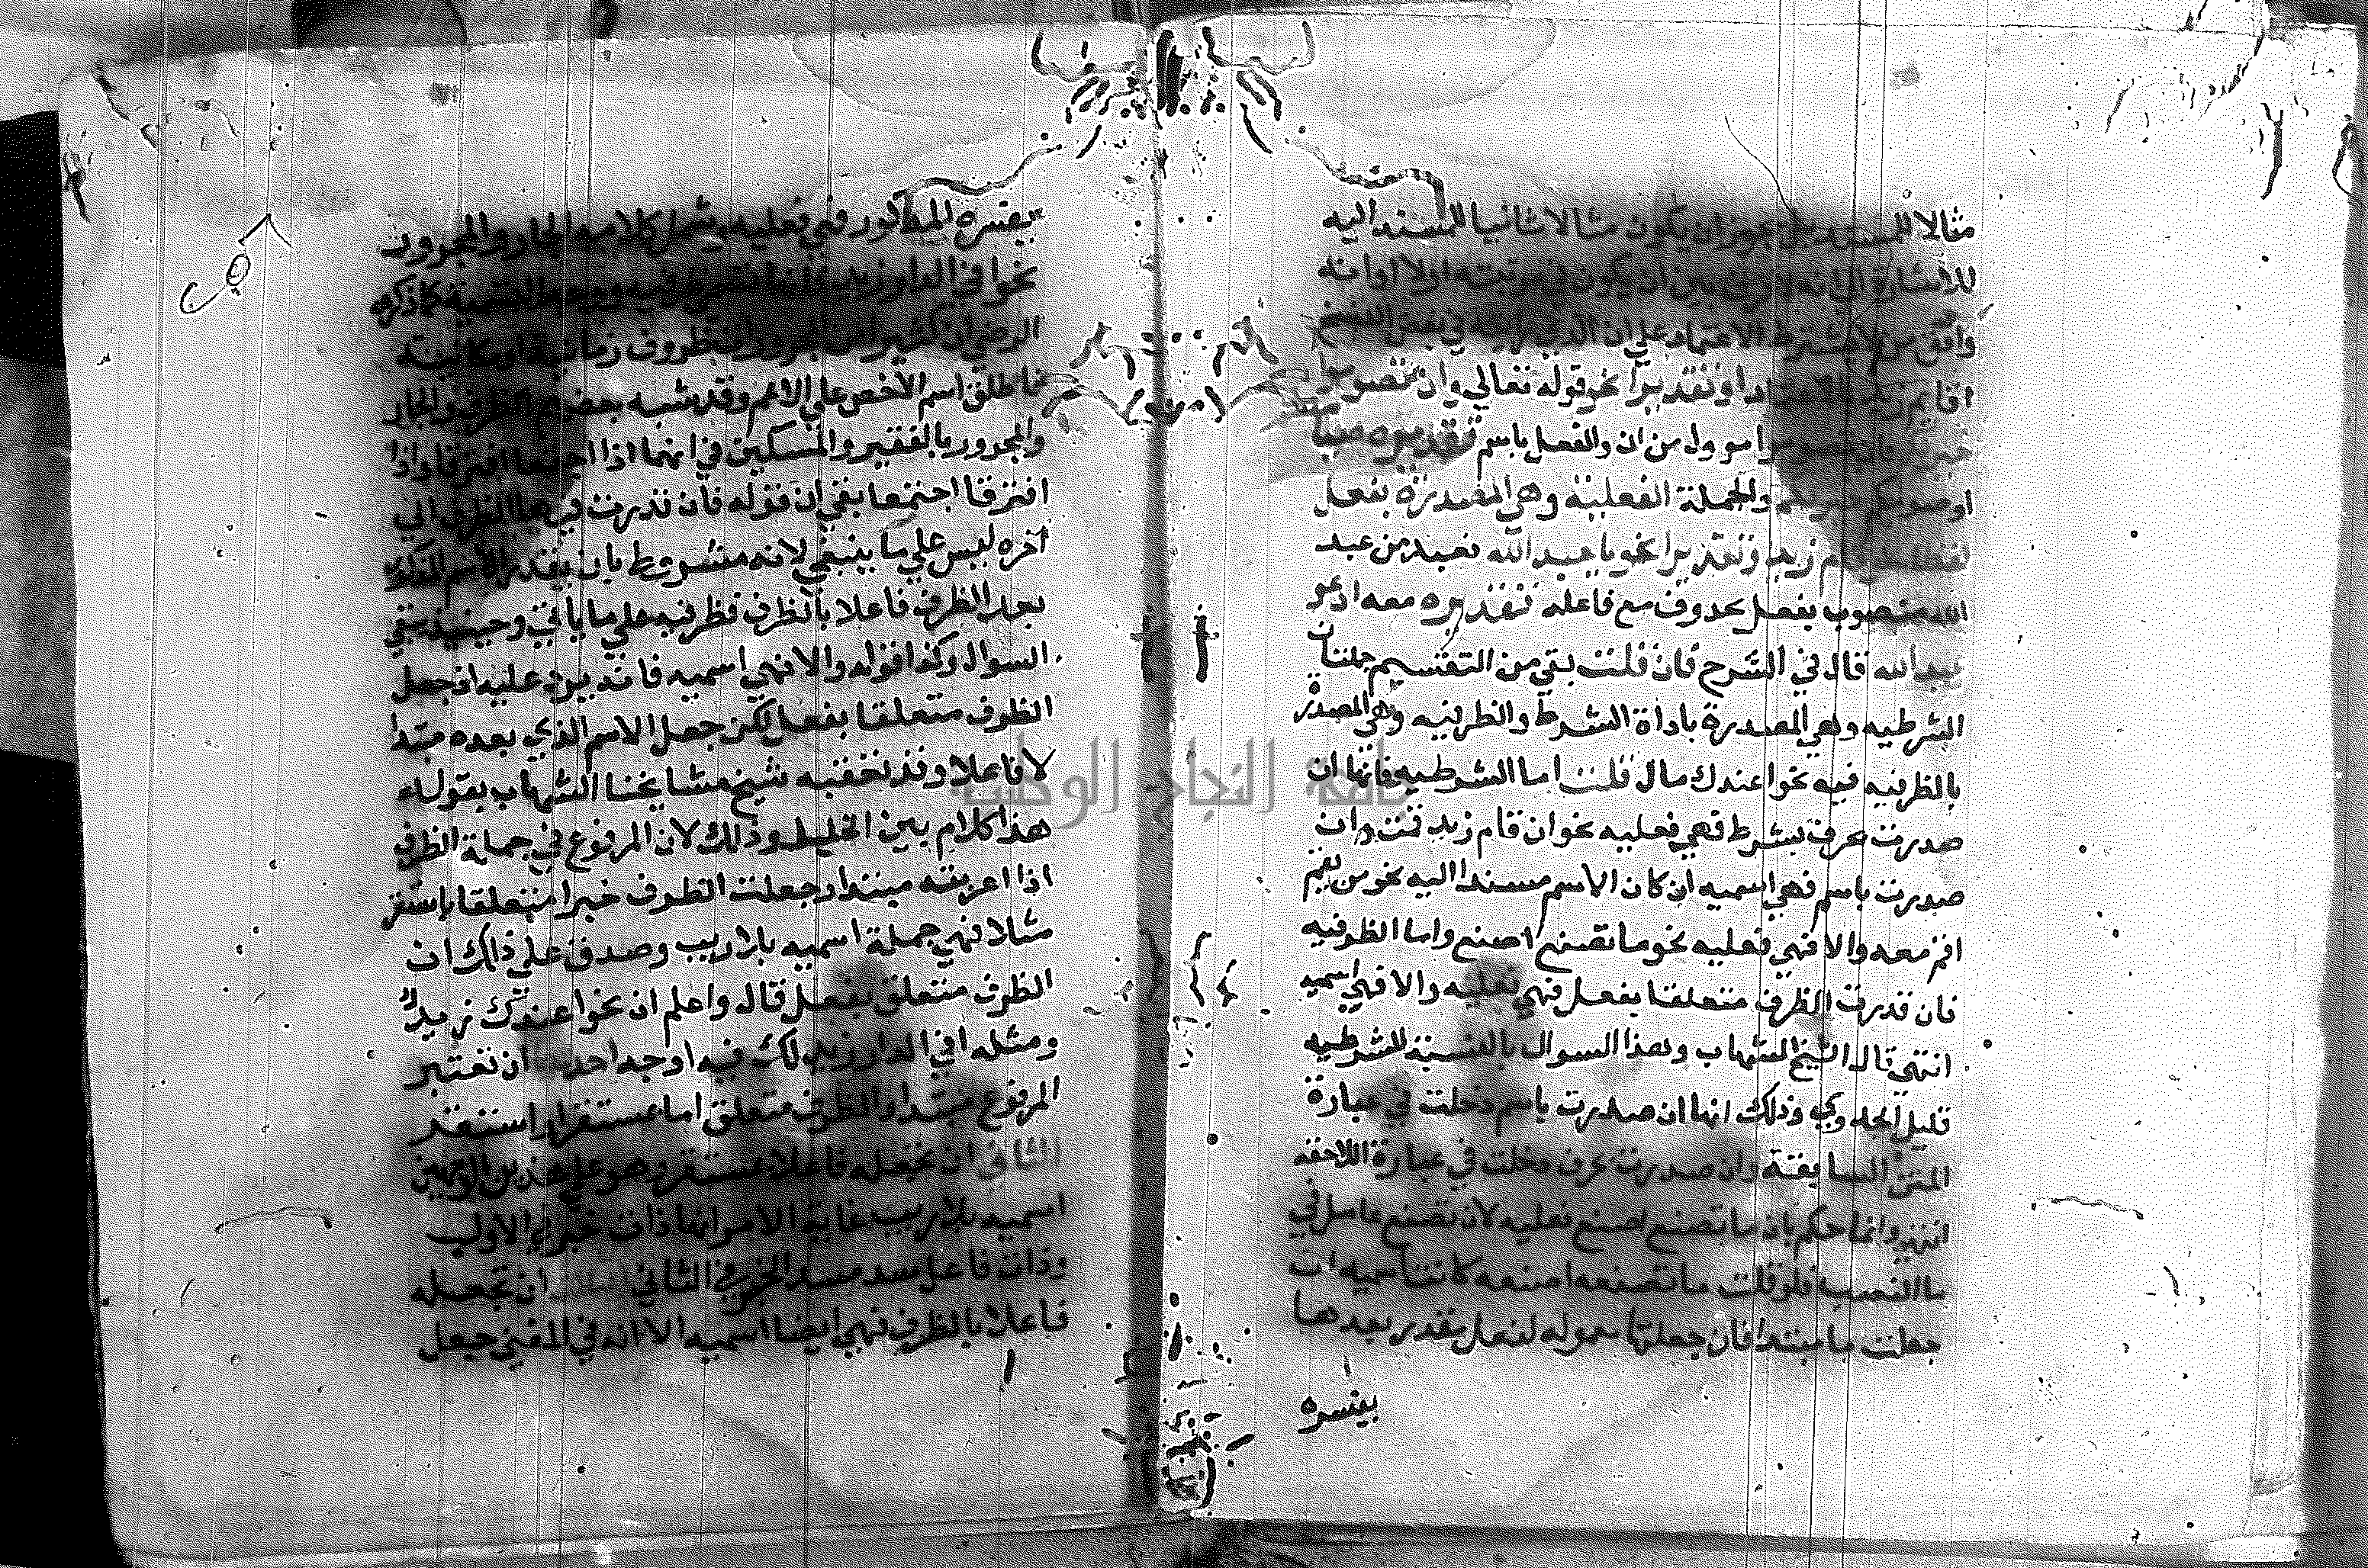 مثالا للمسند بل يجوز ان يكون مثالا ثانيا للمسند اليه
للاشارة الى انه لا فرق بين ان يكون في مرتبته اولا او انه
وافق من لا يشترط الاعتماد على ان الذي رايته في بعض النسخ
اقائم زيد او تقديرا نحو قوله تعالي وان تصوموا
خير لكم فتصوموا مووول من ان والفعل باسم تقديره مبتدا
او صومكم خير لكم والجملة الفعلية وهي المصدرة بفعل
لفظا نحو قام زيد وتقديرا نحو يا عبد الله فعبد من عبد
الله منصوب بفعل محذوف مع فاعله تقديره معه ادعو
عبد الله قال في الشرح فان قلت بقي من التقسيم جملتان
الشرطيه وهي المصدرة باداة الشرط والظرفيه وهي المصدرة
بالظرفيه فيه نحو اعندك مال قلت اما الشرطيه فانها ان
صدرت بحرف شرط فهي فعليه نحو ان قام زيد قمت وان
صدرت باسم فهي اسميه ان كان الاسم مسندا اليه نحو من يقم
اقم معه والا فهي فعليه نحو ما تصنع اصنع واما الظرفيه
فان قدرت الظرف متعلقا بفعل فهي فعليه والا فهي اسميه
انتهى قال الشيخ الشهاب وهذا السوال بالنسبة للشرطيه
قليل الجدوي وذلك انها ان صدرت باسم دخلت في عبارة
المتن السابقة وان صدرت بحرف دخلت في عبارة اللاحقه
انتهى وانما حكم بان ما تصنع اصنع فعليه لان تصنع عامل في
ما النصب فلو قلت ما تصنعه اصنعه كانت اسميه ان
جعلت ما مبتدا فان جعلتها معموله لفعل يقدر بعدها
يفسره
يفسره المذكور فهي فعليه وشمل كلامه الجار والمجرور
نحو افي الدار زيد فانها تسمى ظرفيه ووجه التسمية كما ذكره
الرضي ان كثيرا من المجرورات ظروف زمانية او مكانية
فاطلق اسم الاخص علي الاعم وقد شبه بعضهم الظرف والجار
والمجرور بالفقير والمسكين في انهما اذا اجتمعا افترقا واذا
افترقا اجتمعا بقي ان قوله فان قدرت في هذا الظرف الي
اخره ليس علي ما ينبغي لانه مشروط بان يقدر الاسم المذكور
بعد الظرف فاعلا بالظرف فظرفيه علي ما ياتي وحينئذ يبقي
السوال وكذا قوله والا فهي اسميه فانه يرد عليه اذ جعل
الظرف متعلقا بفعل لكن جعل الاسم الذي بعده مبتدا
لا فاعلا وقد تعقبه شيخ مشايخنا الشهاب بقوله
هذا كلام بين الخليط وذلك لان المرفوع في جملة الظرف
اذا اعربته مبتدا وجعلت الظرف خبرا متعلقا باستقر
مثلا فهي جملة اسميه بلا ريب وصدق علي ذلك ان
الظرف متعلق بفعل قال واعلم ان نحو اعندك زيد
ومثله افي الدار زيد لك فيه اوجه احدها ان تعتبر
المرفوع مبتدا والظرف متعلق اما بمستقر او استقر
الثاني ان تجعله فاعلا بمستقر وهو علي هذين الوجهين
اسميه بلا ريب غاية الامر انها ذات خبر في الاول
وذات فاعل سد مسد الخبر في الثاني الثالث ان تجعله
فاعلا بالظرف فهي ايضا اسميه الا انه في المغني جعل
جامعة النجاح الوطنية